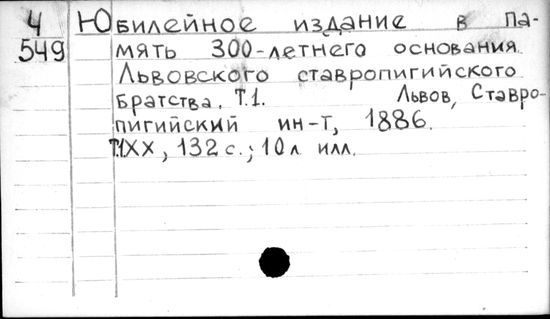 4 Юбилейное издание в па-
549 мять 300-летнего основания
Львовского ставропигийского
братства. Т.1. Львов, Ставро-
пигийский ин-т, 1886.
Т.1XX, 132 с.; 10 л илл.